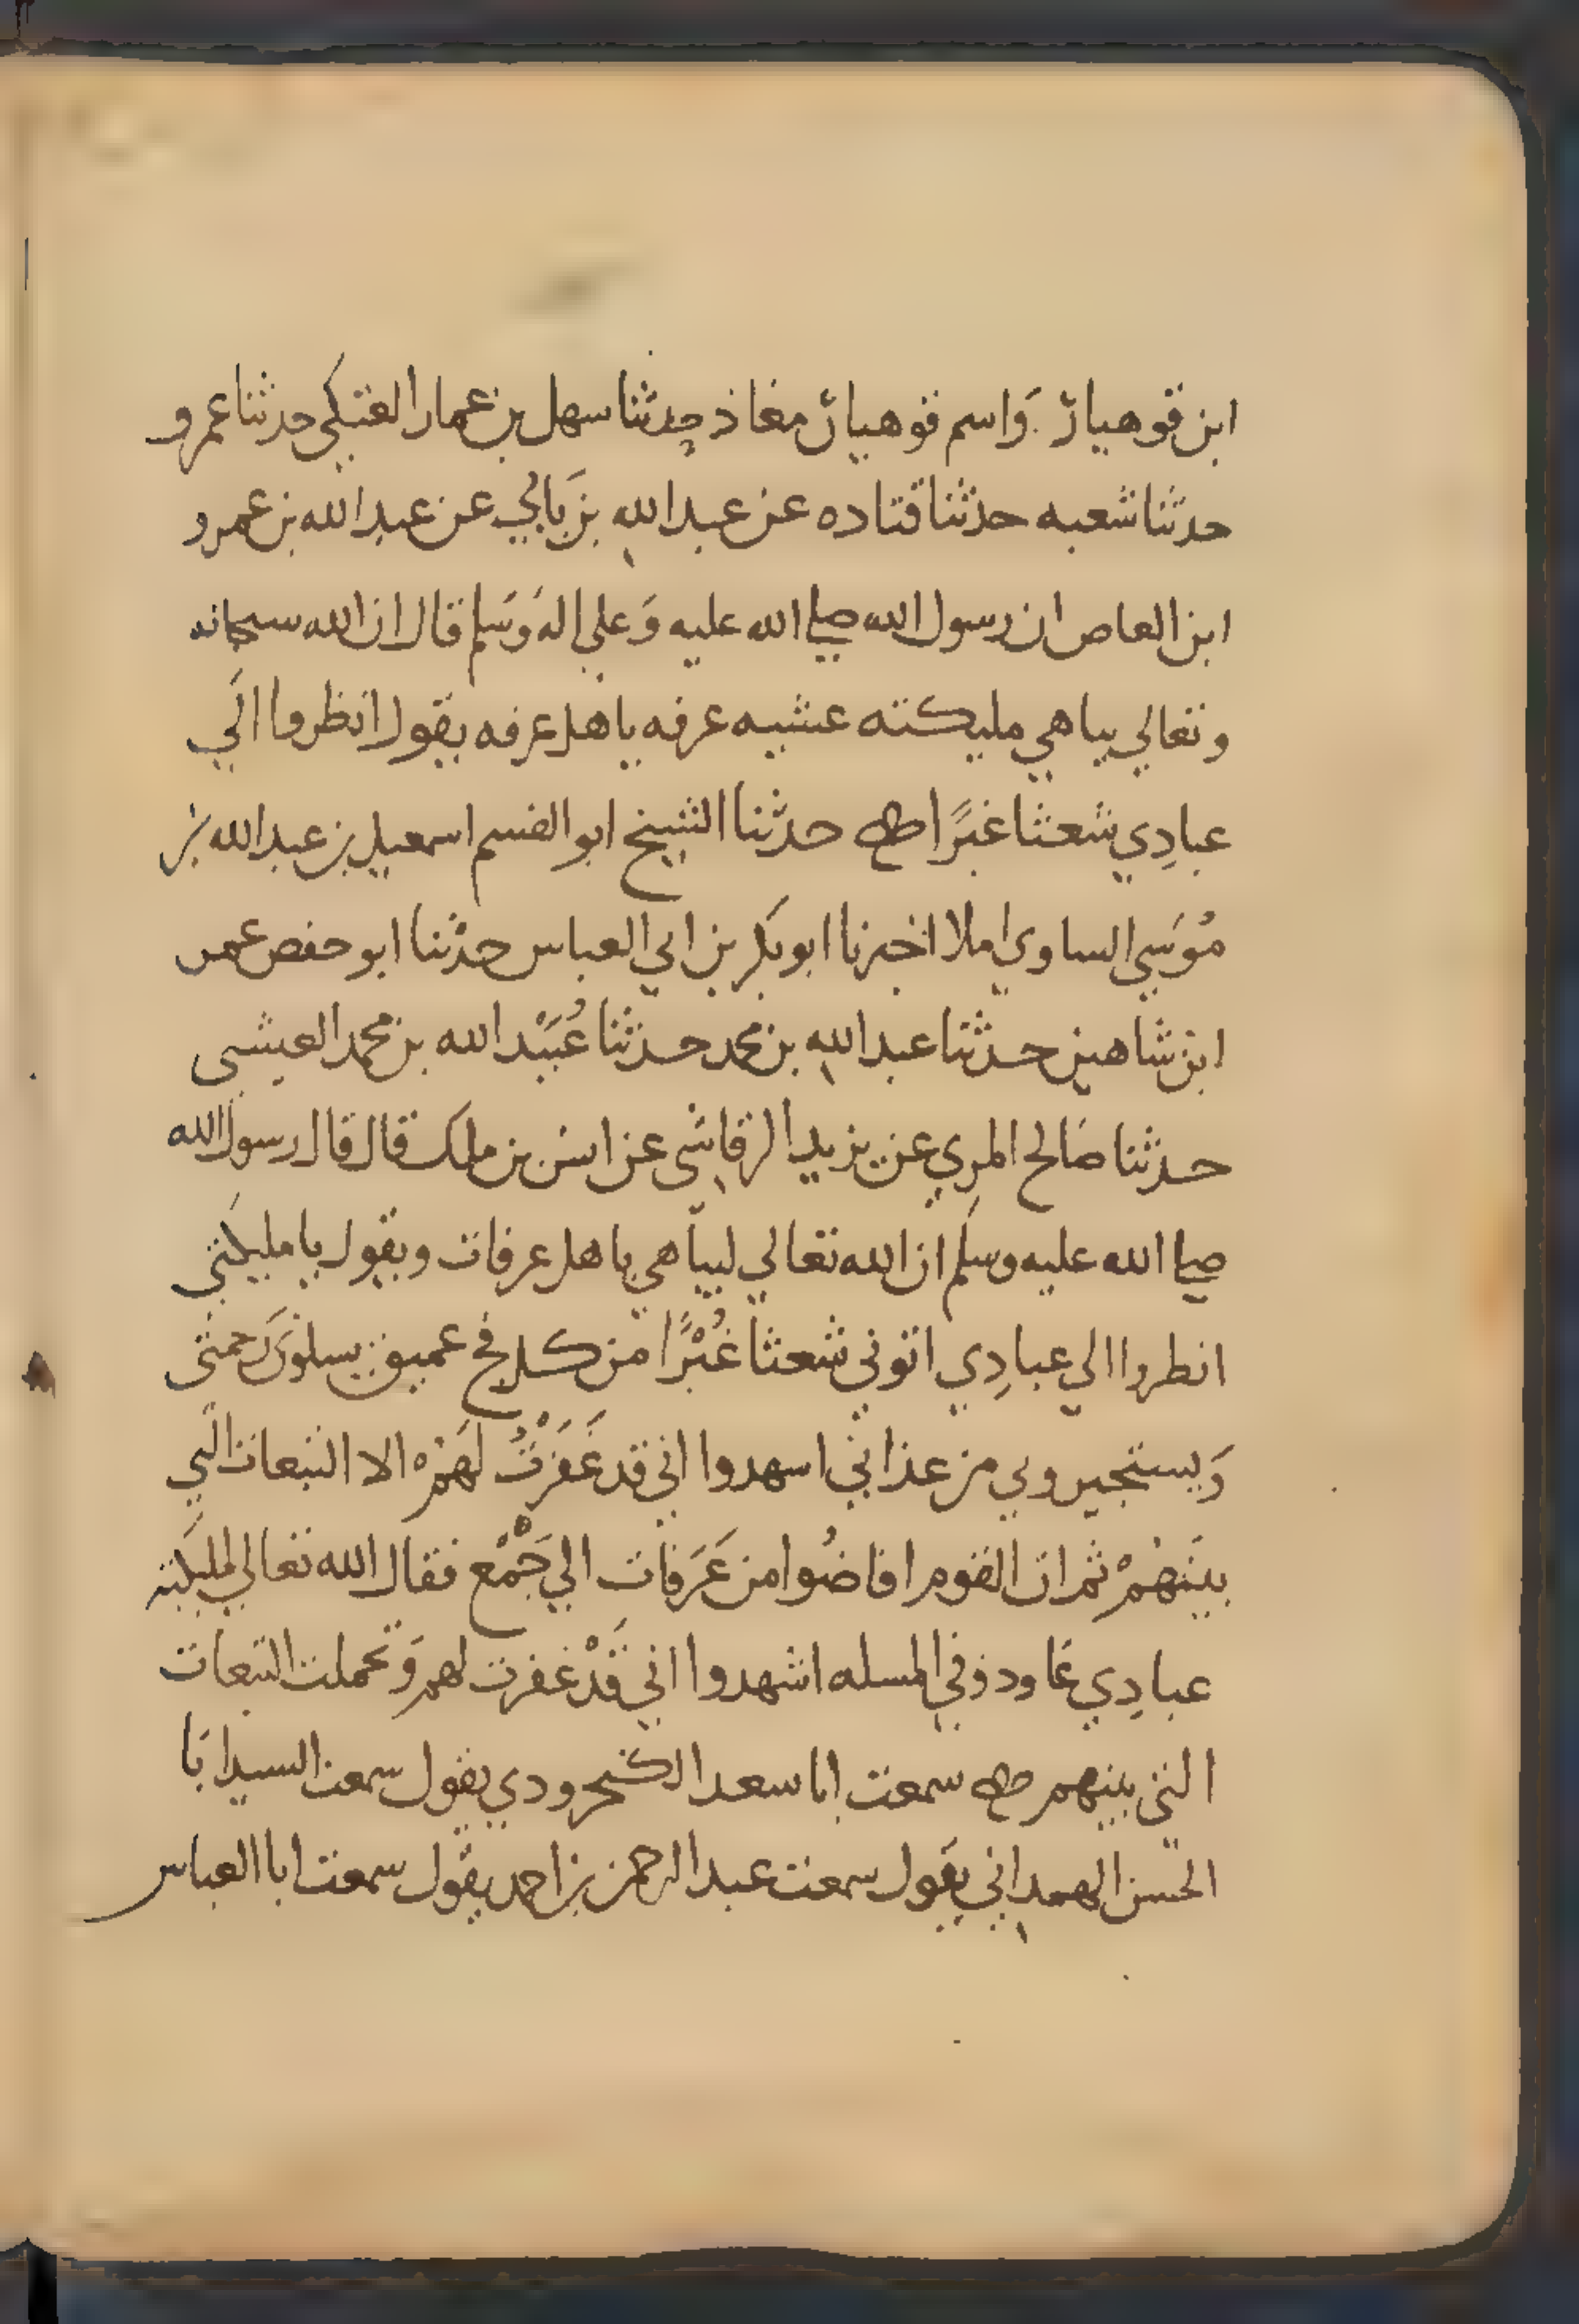 ابن قوهيار. وَاسم قوهيار معاذ حدثنا سهل بن عمار العتكي حدثنا عمرو
حدثنا شعبه حدثنا قتاده عن عبد الله بن بَابي عن عبد الله بن عمرو
ابن العاص ان رسول الله صلى الله عليه وَعلي اله وَسَلم قال ان الله سبحانه
وتعالي يباهي مليكته عشيه عرفه باهل عرفه يقول انظروا الَي
عبادِي شعثا غبرًا حدثنا الشيخ ابو القسم اسمعيل بن عبد الله بن
مُوسَي الساوي املا اخبرنا ابو بكر بن ابي العباس حدثنا ابو حفص عمر
ابن شاهين حدثنا عبد الله بن محمد حدثنا عُبَيْد الله بن محمد العيشي
حدثنا صَالح المري عن يزيد الرقاشي عن انس بن ملك قال قال رسول الله
صلى الله عليه وسلم ان الله تعالي ليباهي باهل عرفات ويقول يا مليكتي
انطروا الي عبادِي اتوني شعثا غُبْرًا من كل فج عميق يسلونَ رَحمتي
وَيستجيروني من عذابي اسهدوا اني قد غَفَرْتُ لَهَمْ الا التبعات التي
بينَهُمْ ثم ان القوم افاضُوا من عَرَفات الي جَمْع فقال الله تعالي لمليكته
عبادِي عَاودوني المسله اشهدوا اني قَدْ غفرت لهم وَتحملت التبعات
التي بينهم سمعت ابا سعد الكنجرودي يقول سمعت السيد ابَا
الحسن الهمداني يقول سمعت عبد الرحمن بن احمد يقول سمعت ابا العباس